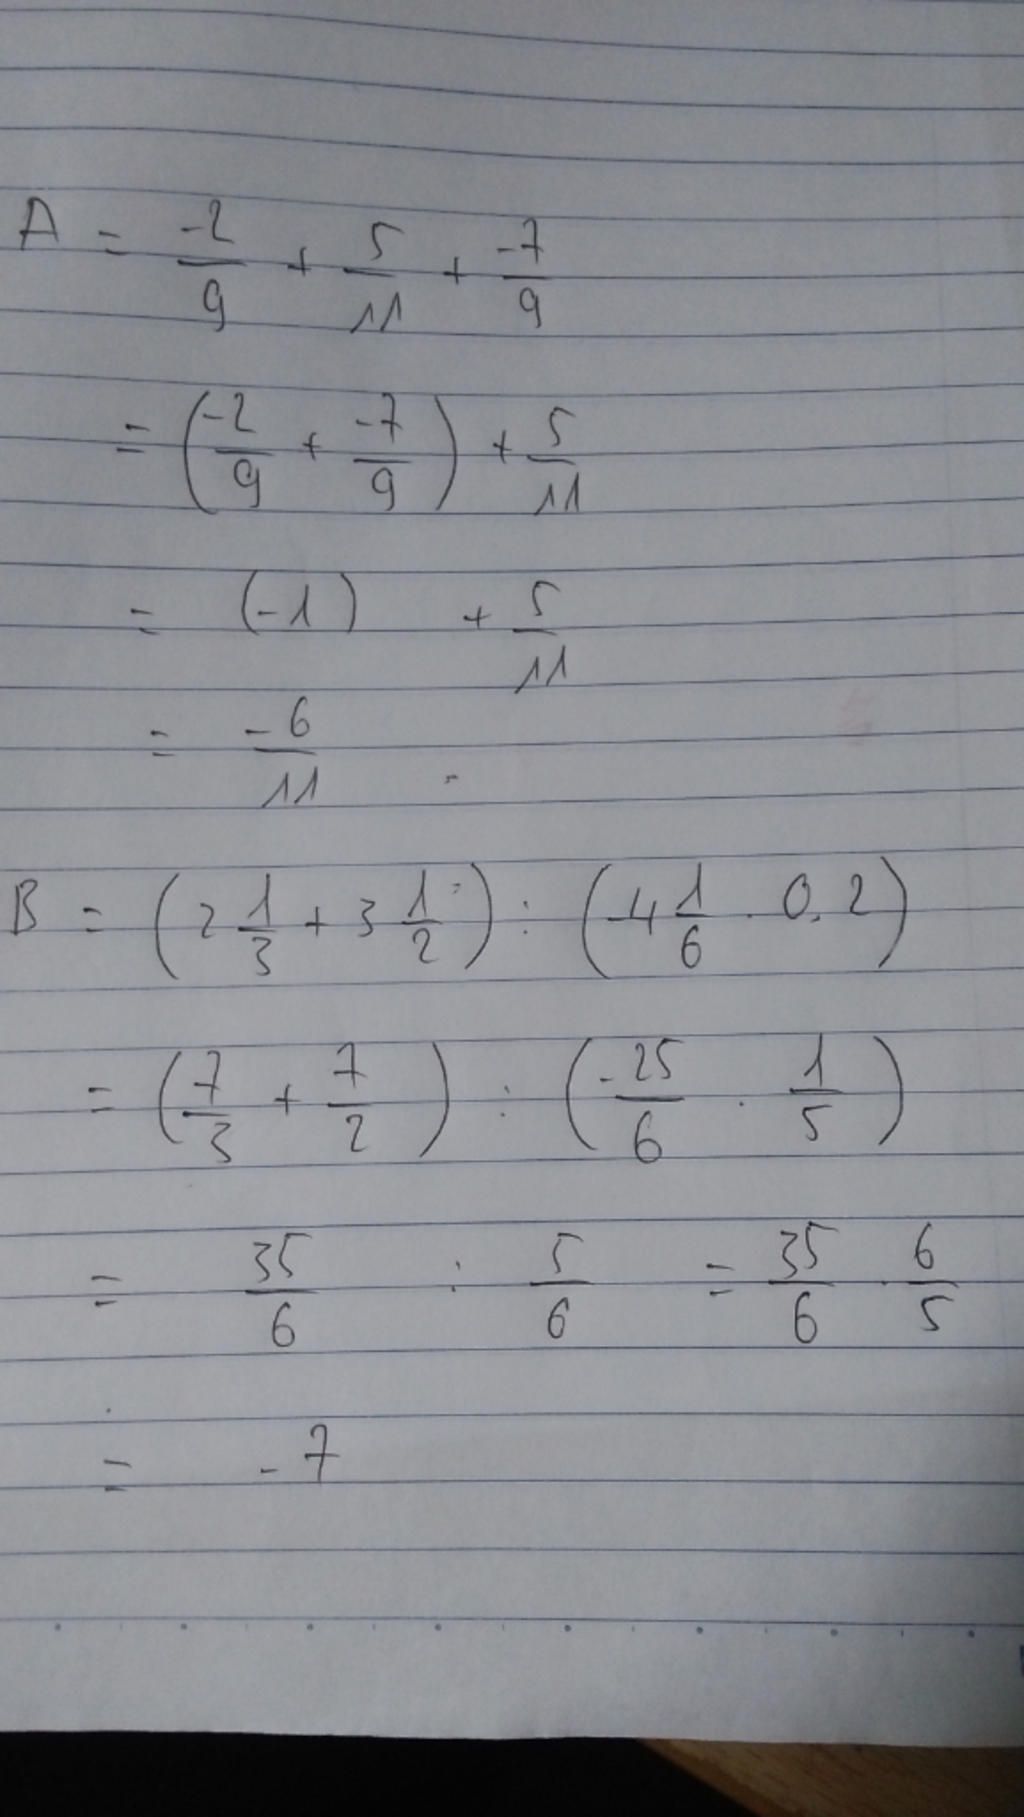 A = -2/9 + 5/11 + -7/9
= (-2/9 + -7/9) + 5/11
= (-1) + 5/11
= -6/11
B = (2 1/3 + 3 1/2) : (-4 1/6 . 0,2)
= (7/3 + 7/2) : (-25/6 . 1/5)
= 35/6 : 5/6 = 35/6 . 6/5
= -7